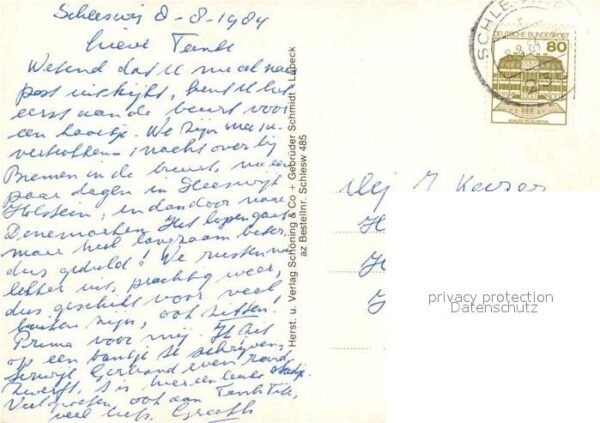 Schleswig 8-8-1984
Lieve Tante
Wetend dat U meestal naar
post uitkijkt, bent U het
eerst aan de beurt voor
een kaartje. We zijn
vertrokken; nacht over bij
Bremen in de buurt, nu een
paar dagen in Sleeswijk
Holstein, en dan door naar
Denemarken. Het lopen gaat
maar heel langzaam beter,
dus geduld! We rusten nu
lekker uit, prachtig weer,
dus geschikt voor veel
buiten zijn, ook zitten!
Prima voor mij. Ik zit
op een bankje te schrijven,
terwijl Gerbrand even rond
zwerft, 't is hier een leuke
Veel groeten ook aan Tante
veel liefs.
Herst. u. Verlag Schöning & Co + Gebrüder Schmidt · Lübeck
az Bestellnr. Schlesw 485
SCHLE
DEUTSCHE BUNDESPOST
80
Mej
privacy protection
Datenschutz